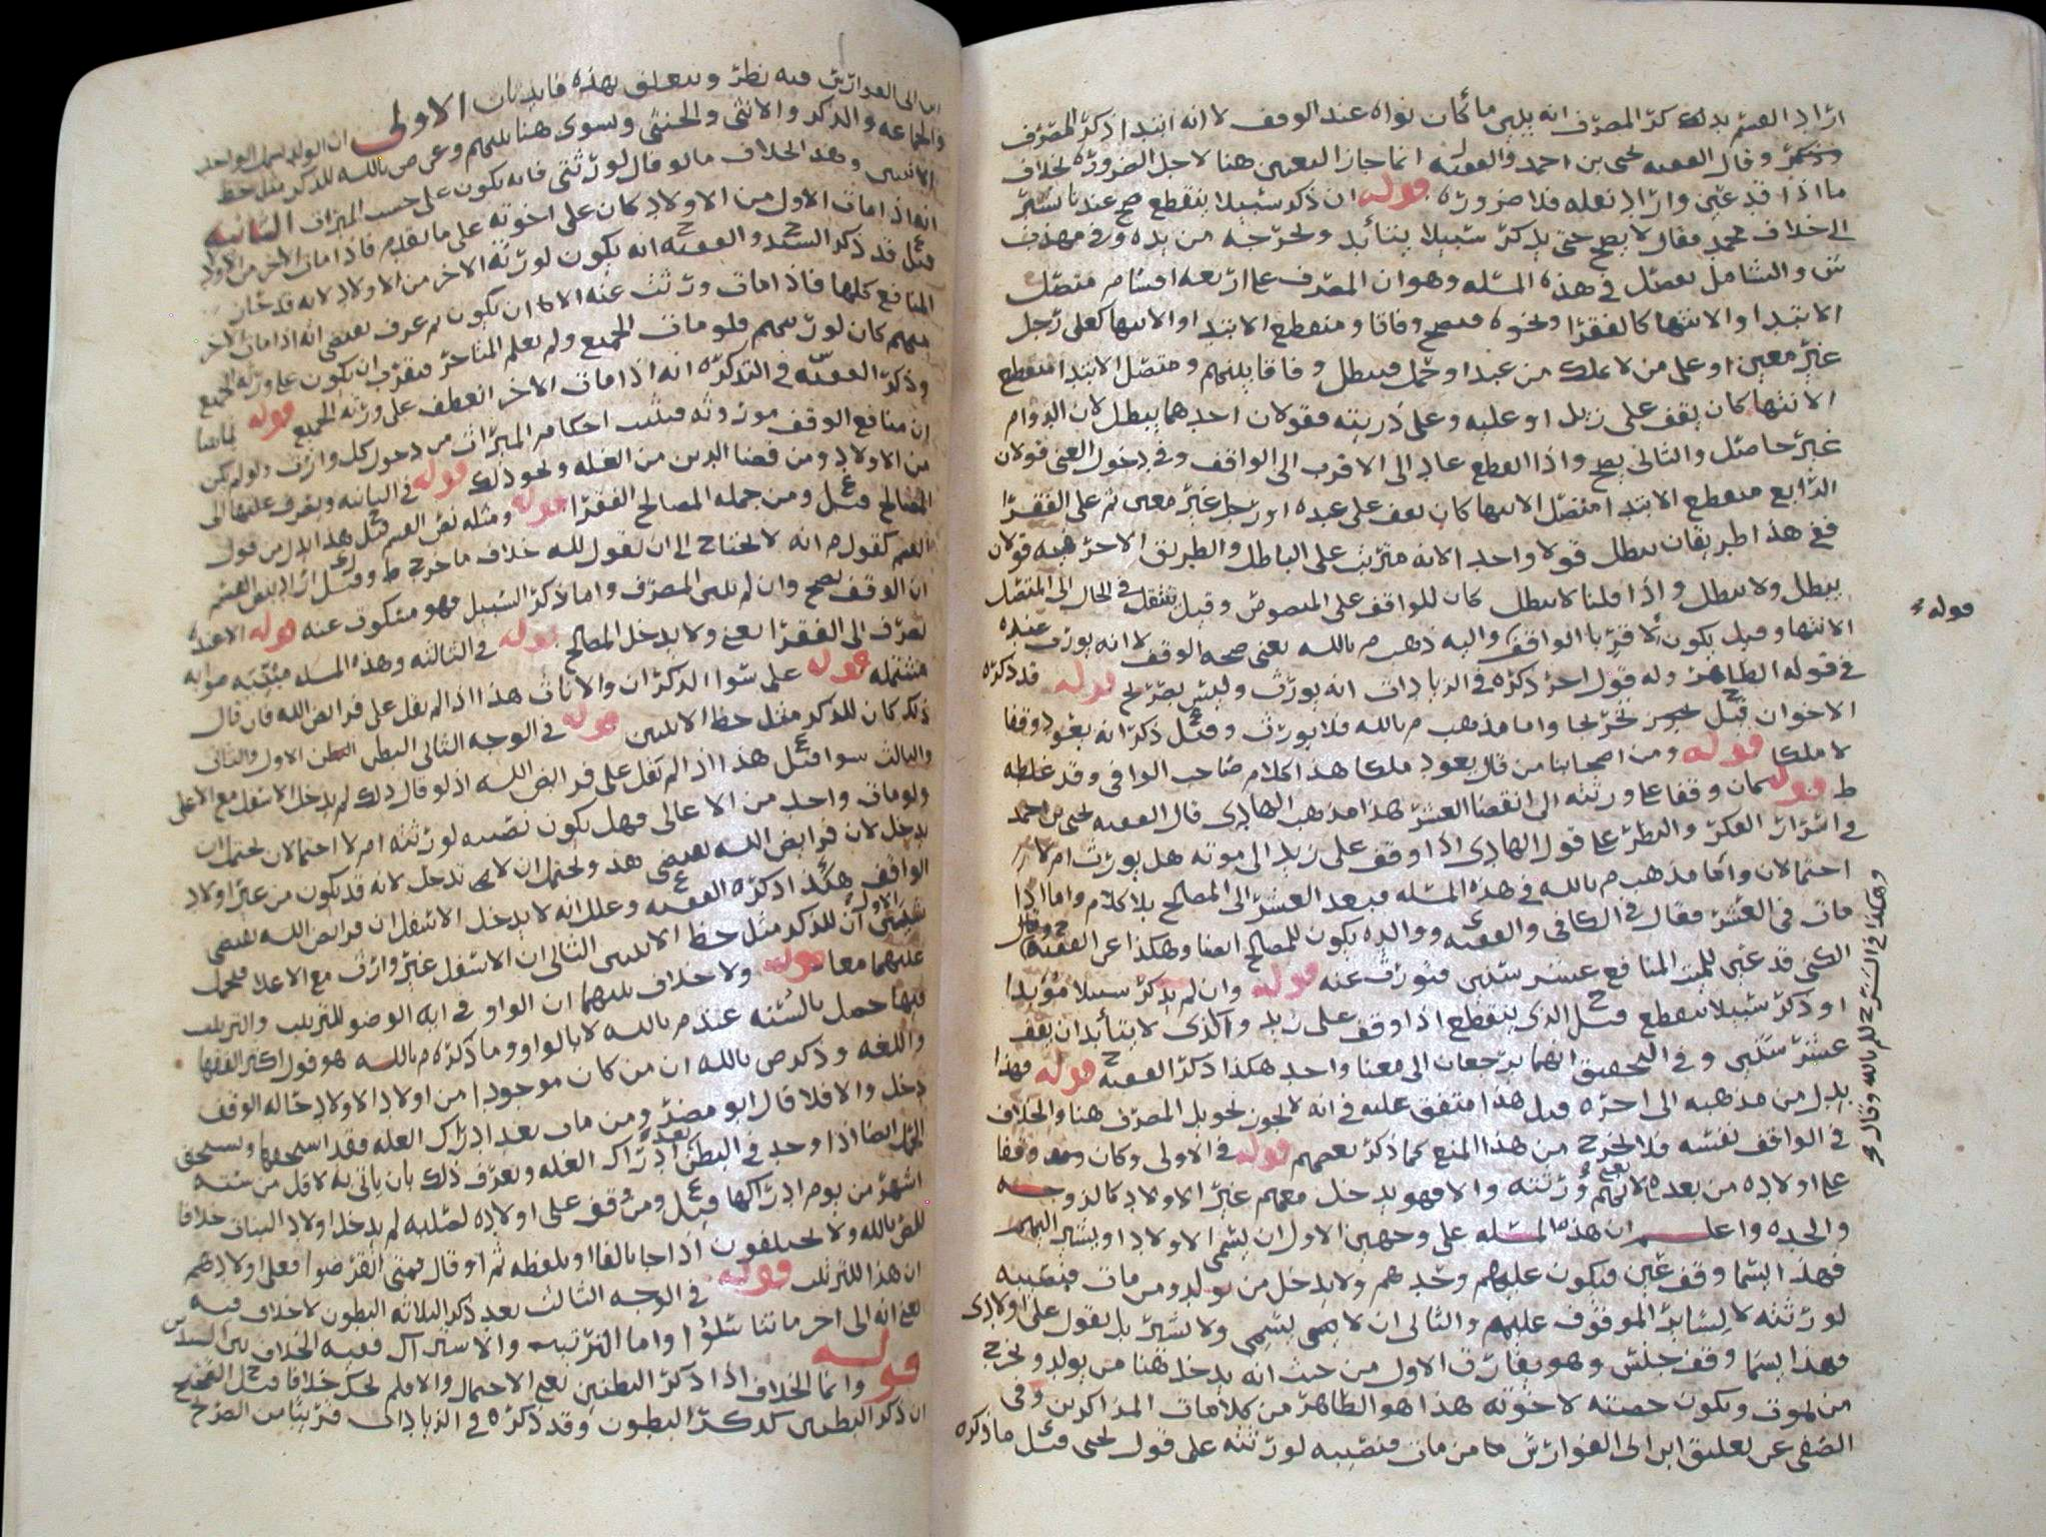 اراد القسم بدلك كر المصرف انه يلبي ما كان نواه عند الوقف لا انه ابتدا ذكر المصرف
وقال الفقيه يحيى بن احمد والفقيه انما جاز التعيين هنا لاجل الضرورة بخلاف
ما اذا قد عين واراد نقله فلا ضروره قوله ان ذكر سبيلا ينقطع صح عند
الى خلاف محمد فقال لا يصح حتى يذكر سبيلا يتأبد ويخرجه من يده وفي مهذب
ش والشامل تفصيل في هذه المسله وهو ان المصرف على اربعه اقسام متصل
الابتدا والانتها كالفقرا ونحوه فيصح وفاقا ومنقطع الابتدا والانتها كعلى رجل
غير معين او على من لا يملك من عبد او حمل فيبطل وفاقا بينهم ومتصل الابتدا منقطع
الانتها كان يقف على زيد او عليه وعلى ذريته فقولان احدهما يبطل لان الدوام
غير حاصل والثاني يصح واذا انقطع عاد الى الاقرب الى الواقف وفي دخول الغني قولان
الرابع منقطع الابتدا متصل الانتها كان يقف على عبده او رجل غير معين ثم على الفقرا
ففي هذا طريقان يبطل قولا واحدا لانه مترتب على الباطل والطريق الاخر فيه قولان
يبطل ولا يبطل واذا قلنا لا يبطل كان للواقف على المنصوص وقيل ينتقل في الحال الى المتصل
الانتها وقيل يكون لاقربا الواقف واليه ذهب م بالله يعني صحه الوقف لا انه يورث عنده
في قوله الظاهر وله قول اخر ذكره في الزيادات انه يورث وليس بصريح قوله قد ذكره
الاخوان قيل تخريجا واما مذهب م بالله فلا يورث وقيل ذكر انه يعود وقفا
لا ملكا قوله ومن اصحابنا من قال يعود ملكا هذا كلام صاحب الوافي وقد غلطه
ط قوله كان وقفا على ورثته الى انقضا العشر هذا مذهب الهادي قال الفقيه يحيى بن احمد
في اسرار الفكر والنظر على قول الهادي اذا وقف على زيد الى موته هل يورث ام لا
احتمالان واما مذهب م بالله في هذه المسله فبعد العشر الى المصالح بلا كلام واما اذا
مات في العشر فقال في الكافي والفقيه ووالده يكون للمصالح ايضا وهكذا عن الفقيه
الكني قد عين للميت المنافع عشر سنين فتورث عنه قوله وان لم يذكر سبيلا مؤبدا
او ذكر سبيلا ينقطع قيل الذي ينقطع اذا وقف على زيد والذي لا يتأبد ان يقف
عشر سنين وفي التحقيق انهما يرجعان الى معنا واحد هكذا ذكر الفقيه قوله فهذا
يدل من مذهبه الى اخره قيل هذا متفق عليه في انه لا يجوز تحويل المصرف هنا والخلاف
في الواقف نفسه فلا يخرج من هذا المنع كما ذكر بعضهم قوله في الاولى وكان وقفا
على اولاده من بعده لانهم ورثته والا فهو يدخل معهم غير الاولاد كالزوجه
والجده واعلم ان هذه المسله على وجهين الاول ان يسمي الاولاد او يشير اليهم
فهذا ايضا وقف عين فيكون عليهم وحدهم ولا يدخل من يولد ومن مات فنصيبه
لورثته لا لسائر الموقوف عليهم والثاني ان لا يسمي ولا يشير بل يقول على اولادي
فهذا ايضا وقف جنس وهو يفارق الاول من حيث انه يدخل هنا من يولد ويخرج
من يموت ويكون حصته لاخوته هذا هو الظاهر من كلامات المذاكرين وفي
الصفي عن تعليق ابن ابي الفوارس من مات فنصيبه لورثته على قول يحيى قيل ما ذكره
قوله
وهكذا في الشرح للم بالله وقال
ابن ابي الفوارس فيه نظر ويتعلق بهذه فايدتان الاولى ان الولد يعم الواحد
والجماعه والذكر والانثى والخنثى ويسوى هنا بينهم وعن ص بالله للذكر مثل حظ
الانثيين وهذا بخلاف ما لو قال لورثتي فانه يكون على حسب الميراث الثانيه
انه اذا مات الاول من الاولاد كان على اخوته على ما تقدم فاذا مات الاخر من الاولاد
قيل قد ذكر السيد والفقيه انه يكون لورثة الاخر من الاولاد لانه قد حاز
المنافع كلها فاذا مات ورثت عنه الا ان يكون ثم عرف يقتضي انه اذا مات الاخر
منهم كان لورثتهم فلو مات الجميع ولم يعلم المتاخر فيقرب ان يكون على ورثة الجميع
وذكر الفقيه في التذكره انه اذا مات الاخر انعطف على ورثة الجميع قوله
ان منافع الوقف موروثه فيثبت احكام الميراث من دخول كل وارث ولو لم يكن
من الاولاد ومن قضا الدين من الغله ونحو ذلك قوله في الثانيه ويصرف غلتها الى
المصالح قيل ومن جمله المصالح الفقرا قوله ومثله نص القسم قيل هذا
القسم كقول م انه لا يحتاج الى ان يقول لله خلاف ما خرج ط وقيل اراد بنص القسم
ان الوقف يصح وان لم يبين المصرف واما ذكر السبيل فهو مسكوت عنه قوله
تصرف الى الفقرا يعني ولا يدخل المصالح قوله في الثالثه وهذه المسله
مشتمله قوله على سوا الذكران والاناث هذا اذا لم يقل على فرايض الله فان قال
ذلك كان للذكر مثل حظ الانثيين قوله في الوجه الثاني البطن الاول والثاني
والثالث سوا قيل هذا اذا لم يقل على فرايض الله اذ لو قال ذلك لم يدخل الاسفل مع الاعلى
ولو مات واحد من الاعالي فهل يكون نصيبه لورثته ام لا احتمالان يحتمل ان
يدخل لان فرايض الله تقتضي هذا ويحتمل ان لا تدخل لانه قد يكون من غير اولاد
الواقف هكذا ذكره الفقيه وعلل انه لا يدخل الاسفل ان فرايض الله تقتضي
شيئين الاول ان للذكر مثل حظ الانثيين الثاني ان الاسفل غير وارث مع الاعلا فيحمل
عليهما معا قوله ولا خلاف بينهما ان الواو في ايه الوضو للترتيب والترتيب
فيها حمل بالسنه عند م بالله لا بالواو وما ذكره م بالله هو قول اكثر الفقها
واللغه وذكر ص بالله ان من كان موجودا من اولاد الاولاد حاله الوقف
دخل والا فلا قال ابو مضر ومن مات بعد ادراك الغله فقد استحقها ويستحق
الحمل ايضا اذا وجد في البطن بعد ادراك الغله ويعرف ذلك بان ياتي به لاقل من سته
اشهر من يوم ادراكها قيل ومن وقف على اولاده لصلبه لم يدخل اولاد البنات خلافا
للم بالله ولا يختلفون اذا جا بالفا او بلفظه ثم او قال فمتى انقرضوا فعلى اولادهم
ان هذا للترتيب قوله في الوجه الثالث بعد ذكر الثلاثه البطون لا خلاف فيه
يعني انه الى اخر ما تناسلوا واما الترتيب والاشتراك ففيه الخلاف بين السيدين
قوله وانما الخلاف اذا ذكر البطنين يعني الاحتمال والا فلم يحك خلافا قيل الصحيح
ان ذكر البطنين كذكر البطون وقد ذكره في الزيادات قريبا من الصريح